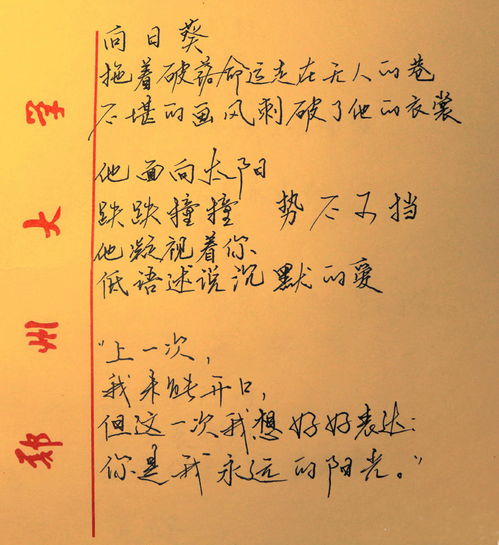 向日葵
拖着破落命运走在无人的巷
不堪的画风刺破了他的衣裳
他面向太阳
跌跌撞撞 势不可挡
他凝视着你
低语述说沉默的愛
“上一次，
我未能开口，
但这一次我想好好表达：
你是我永远的阳光。”
郑州大学